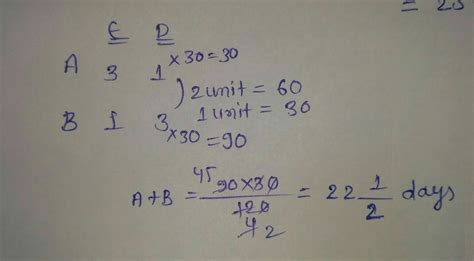 = 25
E D
A 3 1 ×30=30
) 2 unit = 60
1 unit = 30
B 1 3 ×30 =90
A+B = 45 90×30 / 120 4 2 = 22 1/2 days